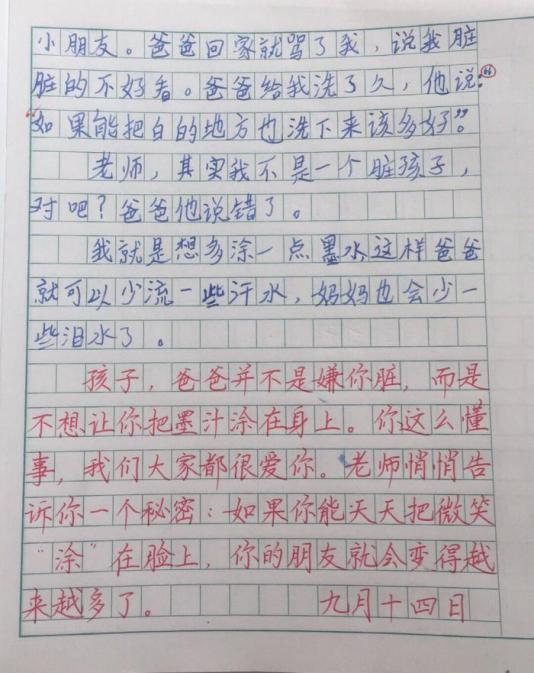 小朋友。爸爸回家就骂了我，说我脏
脏的不好看。爸爸给我洗了久，他说：
“如果能把白的地方也洗下来该多好”。
老师，其实我不是一个脏孩子，
对吧？爸爸他说错了。
我就是想多涂一点墨水这样爸爸
就可以少流一些汗水，妈妈也会少一
些泪水了。
孩子，爸爸并不是嫌你脏，而是
不想让你把墨汁涂在身上。你这么懂
事，我们大家都很爱你。老师悄悄告
诉你一个秘密：如果你能天天把微笑
“涂”在脸上，你的朋友就会变得越
来越多了。 九月十四日